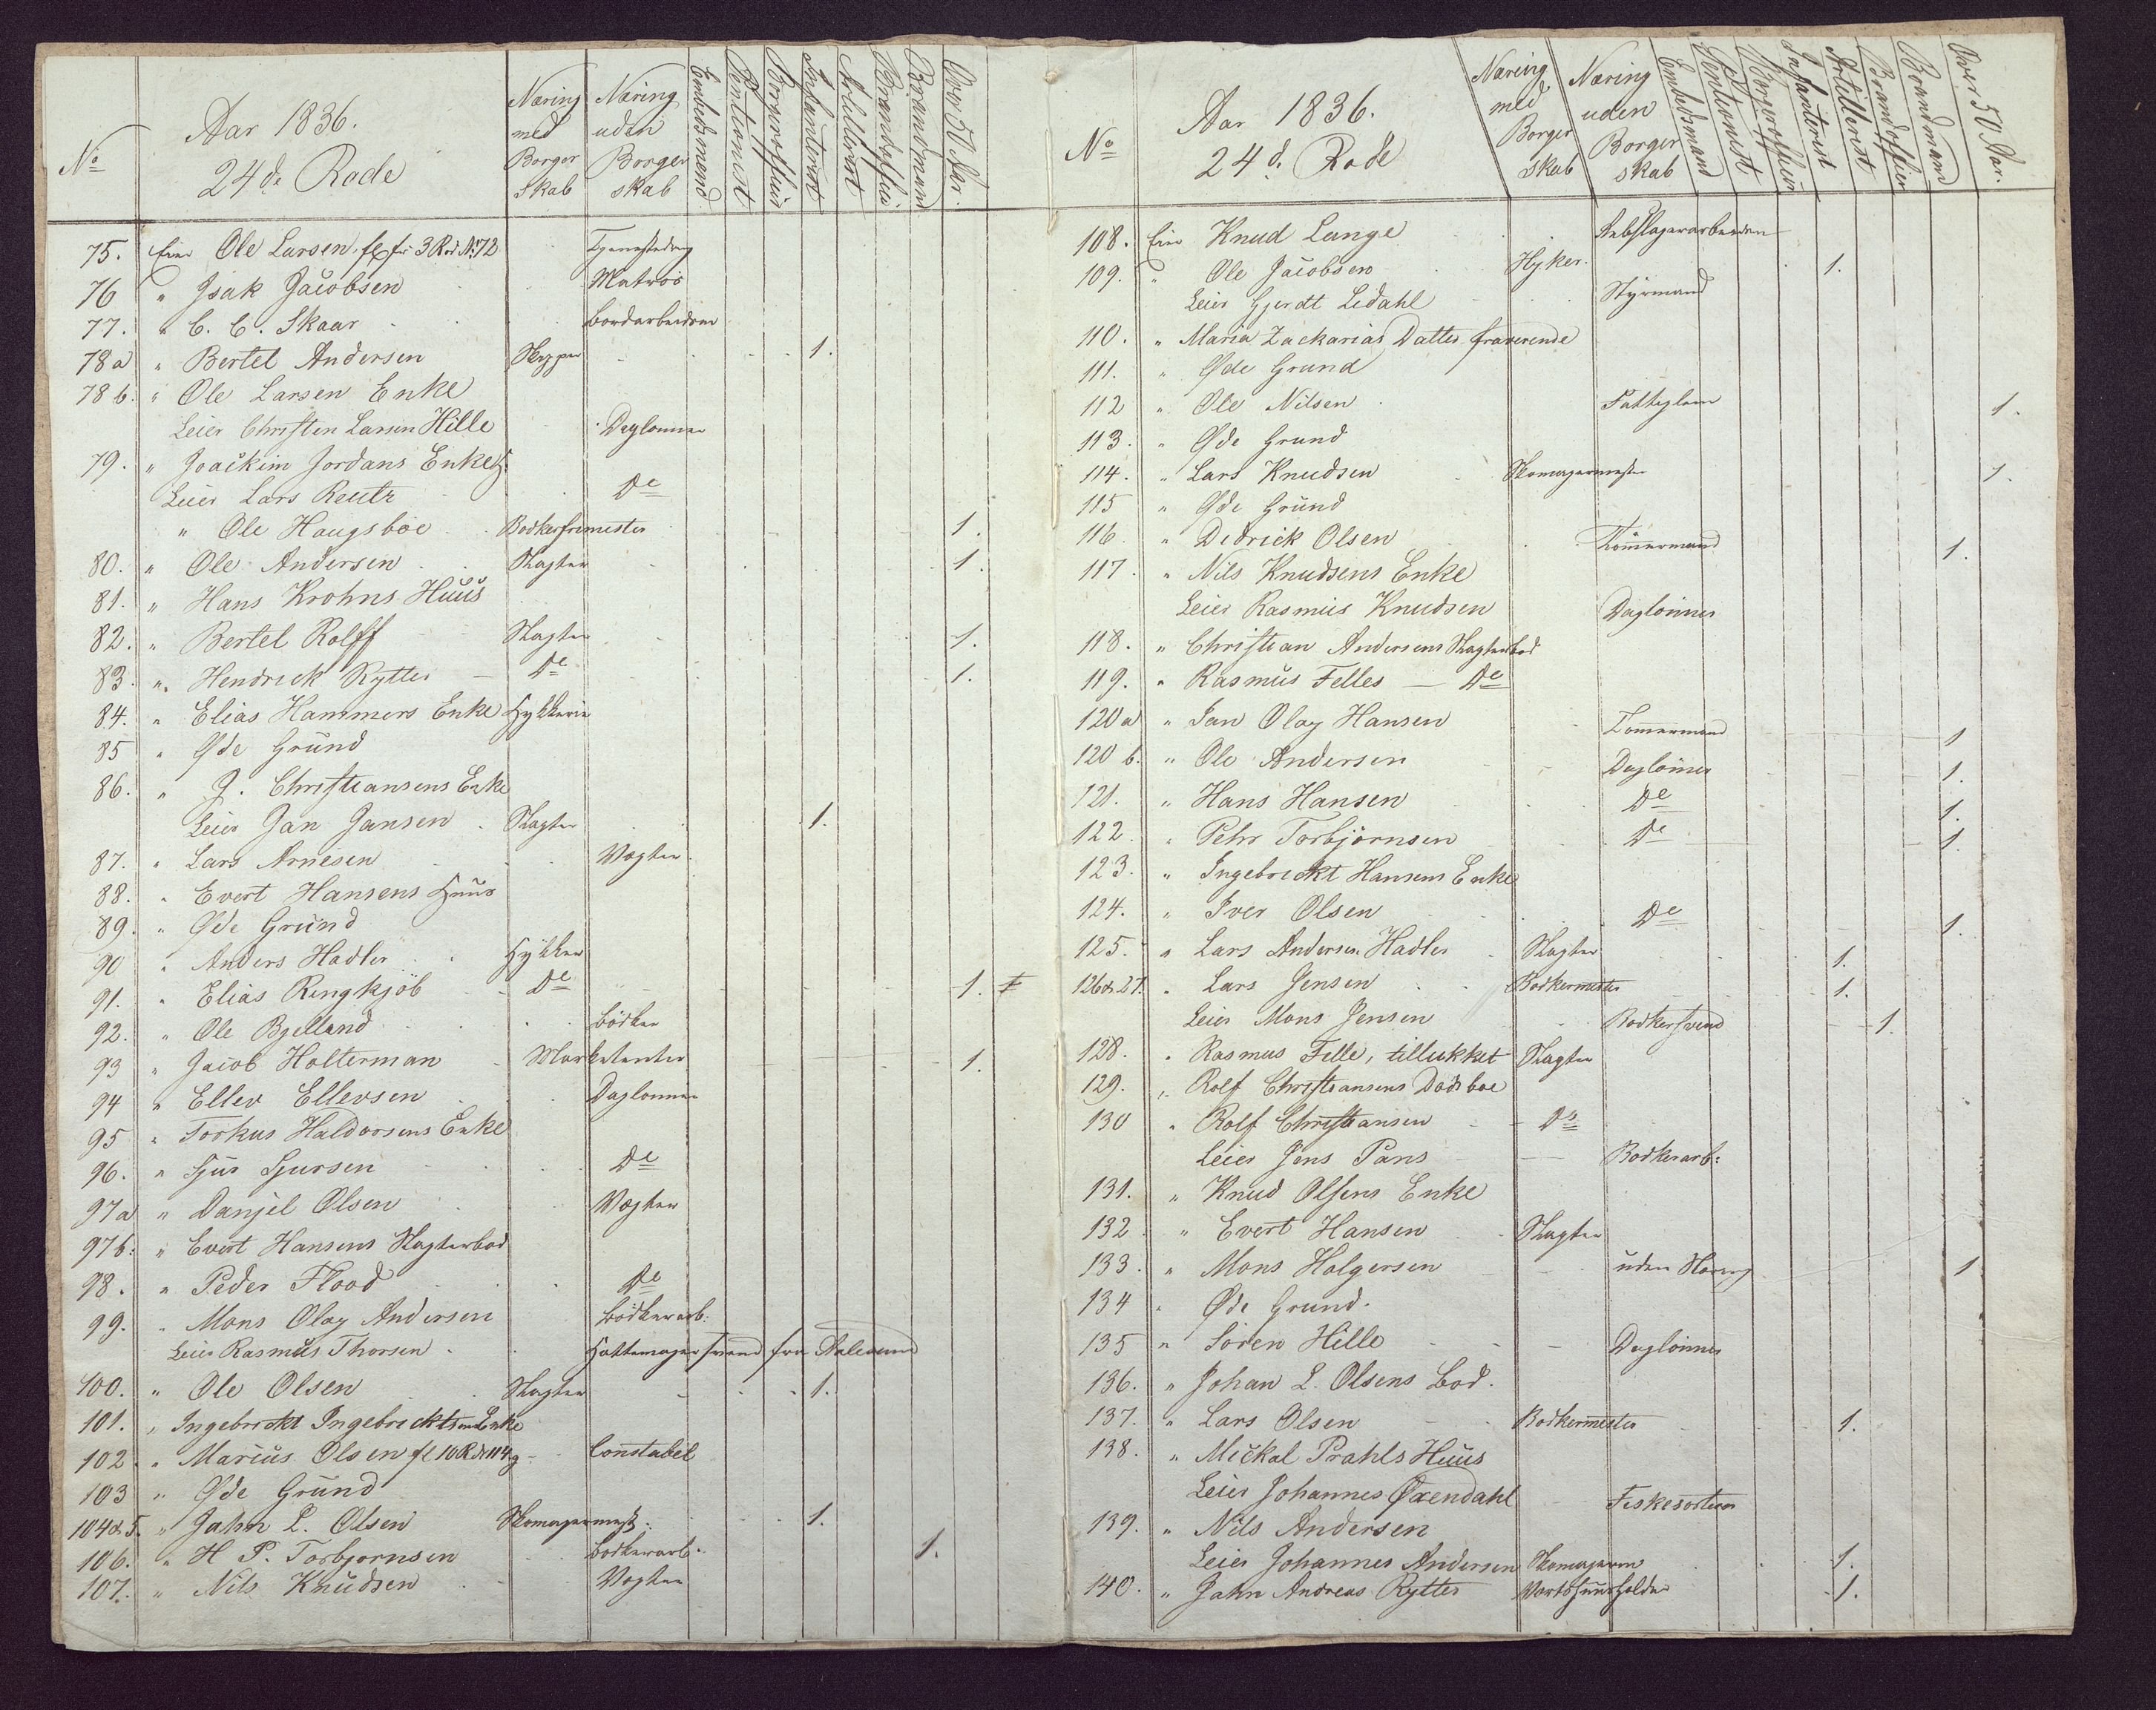 No
Aar 1836.
24de Rode
Næring med Borger Skab
Næring uden Borger skab
Embedsmand
Pentionist
Borgerofficir
Infanterist
Artillerist
Brandofficir
Brandmand
Over 50 Aar.
75. Eier Ole Larsen 3 Rod No 72
76 " Isak Jacobsen Matros
77. " C. C. Skaar Bordarbeider
78a " Bertel Andersen Skipper 1.
78b. " Ole Larsen Enke
Leier Christen Larsen Hille Daglønner
79. " Joackim Jordans Enke
Leier Lars Reutz De
" Ole Haugsböe Bødkerfrimester 1.
80. " Ole Andersen Slagter 1.
81. " Hans Krohns Huus
82. " Bertel Rolff Slagter 1.
83. " Hendrick Rytter De 1.
84. " Elias Hammers Enke Hykkerie
85 " Øde Grund
86. " J. Christiansens Enke
Leier Jan Jansen Slagter 1.
87. " Lars Arnesen Vægter
88. " Evert Hansens Huus
89. " Øde Grund
90 " Anders Hadler Hykker
91. " Elias Ringkjöb De 1.
92. " Ole Bjelland Bödker
93 " Jacob Holterman Marketenter 1.
94 " Ellev Ellevsen Daglønner
95 " Torkus Haldorsens Enke
96. " Sjur Sjursen De
97a " Danjel Olsen Vægter
97b. " Evert Hansens Slagterbod
98. " Peder Flood De
99. " Mons Olay Andersen Bödkerarb.
Leier Rasmus Thorsen Hattemagersvend fra Aalesund
100. " Ole Olsen Slagter 1.
101. " Ingebrickt Ingebricktsens Enke
102. " Marius Olsen fl 10 Rd Constabel
103 " Øde Grund
104 & 5. " Jahn L. Olsen Skomagermestr. 1.
106. " H P. Torbjornsen Bodkerarb. 1.
107. " Nils Knudsen Vægter
No
Aar 1836.
24d. Rode
Næring med Borger Skab
Næring uden Borger skab
Embedsmand
Pentionist
Borgerofficir
Infanterist
Artillerist
Brandofficir
Brandmand
Over 50 Aar.
108. Eier Knud Lange Rebslagerarbeider
109. " Ole Jacobsen Hyker. 1.
Leier Gjerdt Ledahl Styrmand
110. " Maria Zackarias Datter fraværende
111. " Øde Grund
112 " Ole Nilsen Fattiglem 1.
113. " Øde Grund
114. " Lars Knudsen Skomagermester 1.
115 " Øde Grund
116. " Dedrick Olsen Tömmermand 1.
117. " Nils Knudsens Enke
Leier Rasmus Knudsen Daglönner
118. " Christian Andersens Slagterbod
119. " Rasmus Felles De
120a " Jan Olay Hansen Tömmermand 1
120b. " Ole Andersen Daglönner 1.
121. " Hans Hansen De 1.
122 " Pehr Torbjörnsen De 1.
123. " Ingebrickt Hansens Enke
124. " Iver Olsen De 1.
125. " Lars Andersen Hadler Slagter 1.
126 & 27. " Lars Jensen Bodkermester 1.
Leier Mons Jensen Bodkersvend 1.
128. " Rasmus Felle, tillukket Slagter
129. " Rolf Christiansens Dödsboe
130 " Rolf Christiansen De
Leier Jens Pans Bodkerarb:
131. " Knud Olsens Enke
132 " Evert Hansen Slagter
133. " Mons Holgersen uden Næring 1
134 " Øde Grund.
135 " Sören Hille Daglönner
136. " Johan L. Olsens Bod.
137. " Lars Olsen Bodkermester 1.
138. " Mickal Prahls Huus
Leier Johannes Øxendahl Fiskesorterer
139. " Nils Andersen
Leier Johannes Andersen Skomagerm 1.
140. " Jahn Andreas Rytter Vertshuusholder 1.